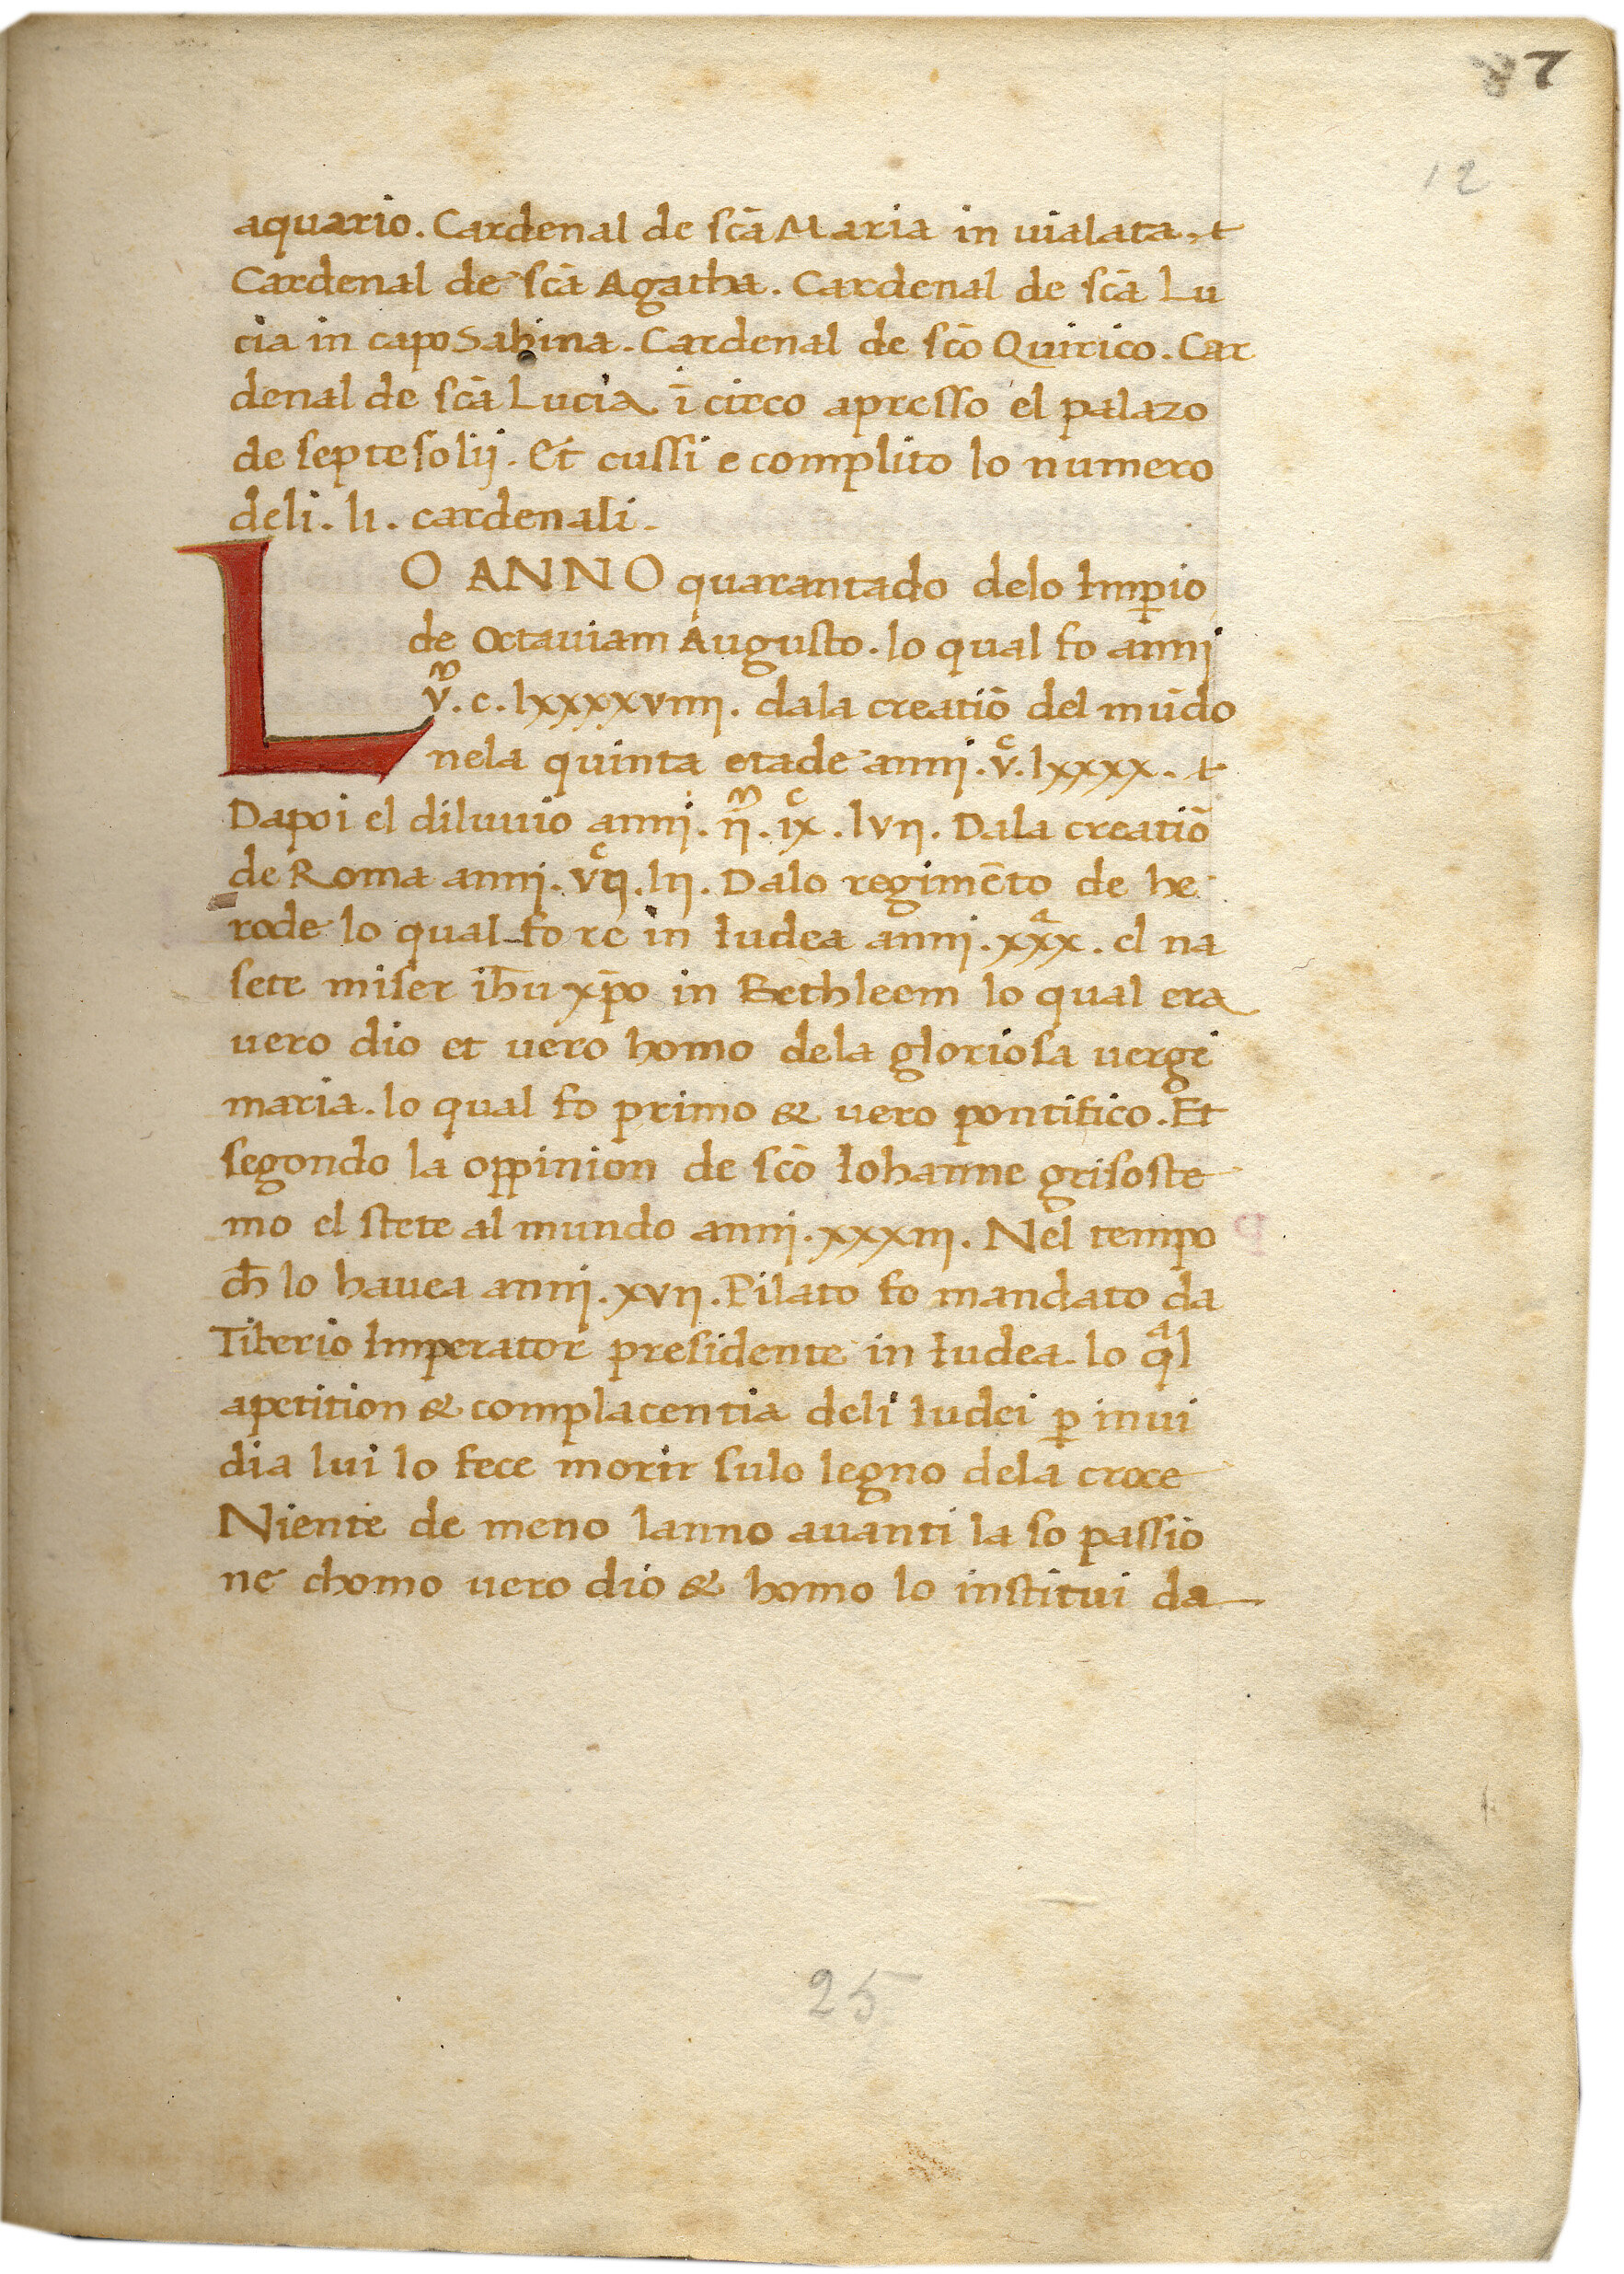 87
12
aquario. Cardenal de scā Maria in uialata. &
Cardenal de scā Agatha. Cardenal de scā Lu
cia in capo Sabina. Cardenal de scō Quirico. Car
denal de scā Lucia ī circo apresso el palazo
de septesolij. Et cussi e complito lo numero
deli. li. cardenali.
LO ANNO quarantado delo Imꝑio
de Octauiam Augusto. lo qual fo annj
vͫ. c. lxxxxviiij. dala creatiō del mūdo
nela quinta etade annj. vͨ. lxxxx. &
Dapoi el diluuio annj. ijͫ. ixͨ. lvij. Dala creatiō
de Roma annj. vijͨ. lij. Dalo regimēto de he
rode lo qual fo re in Iudea annj. xxxͣ. el na
sete miser ihu xp̄o in Bethleem lo qual era
uero dio et uero homo dela gloriosa uerge
maria. lo qual fo primo & uero pontifico. Et
segondo la oppinion de scō Iohanne grisoste
mo el stete al mundo annj. xxxiij. Nel tempo
ch̄ lo hauea annj. xvij. Pilato fo mandato da
Tiberio Imperator presidente in Iudea. lo qͣl
apetition & complacentia deli Iudei ꝑ inui
dia lui lo fece morir sulo legno dela croce
Niente de meno lanno auanti la so passiō
ne chomo uero dio & homo lo institui da
25